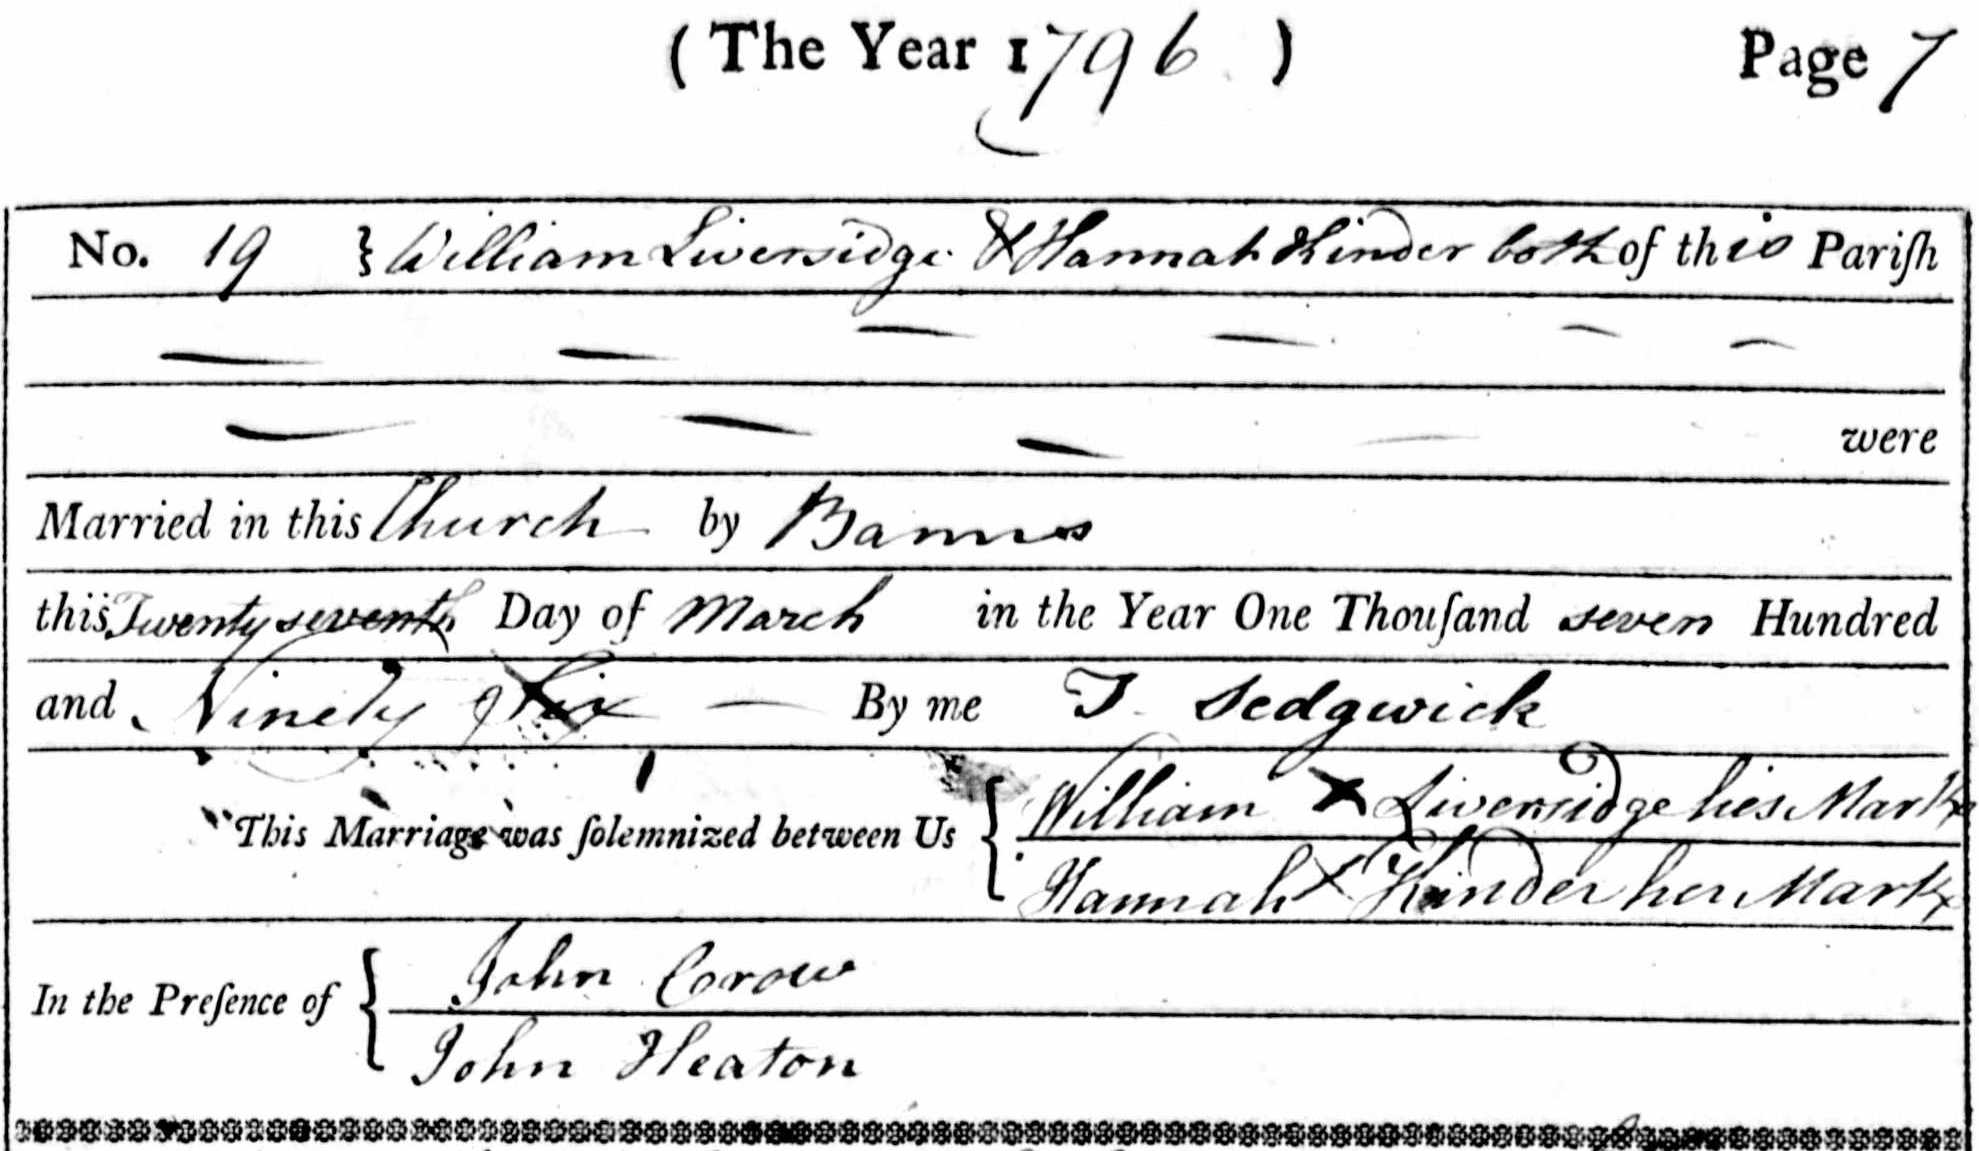 ( The Year 1796 ) Page 7
No. 19 } William Liversidge & Hannah Kinder both of this Pariſh
were
Married in this Church by Banns
this Twenty seventh Day of March in the Year One Thouſand seven Hundred
and Ninety Six — By me T. Sedgwick
This Marriage was ſolemnized between Us { William X Liversidge his Mark
Hannah X Kinder her Mark
In the Preſence of { John Crow
John Heaton